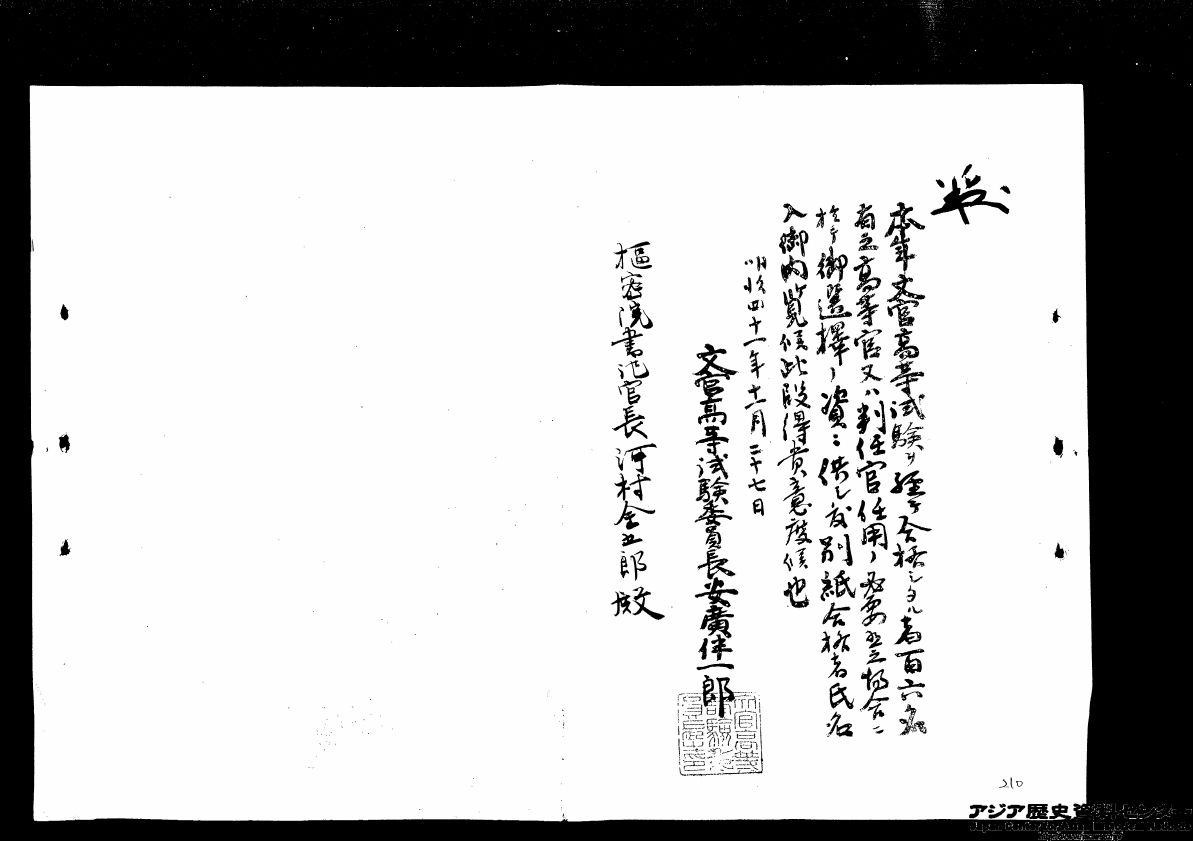 本年文官高等試験ヲ経テ合格シタル者百六名
有之高等官又ハ判任官任用ノ必要有之場合ニ
於テ御選択ノ資ニ供シ度別紙合格者氏名
入御内覧候此段得貴意度候也
明治四十一年十一月二十七日
文官高等試験委員長安廣伴一郎
枢密院書記官長河村金五郎殿
210
アジア歴史資料センター